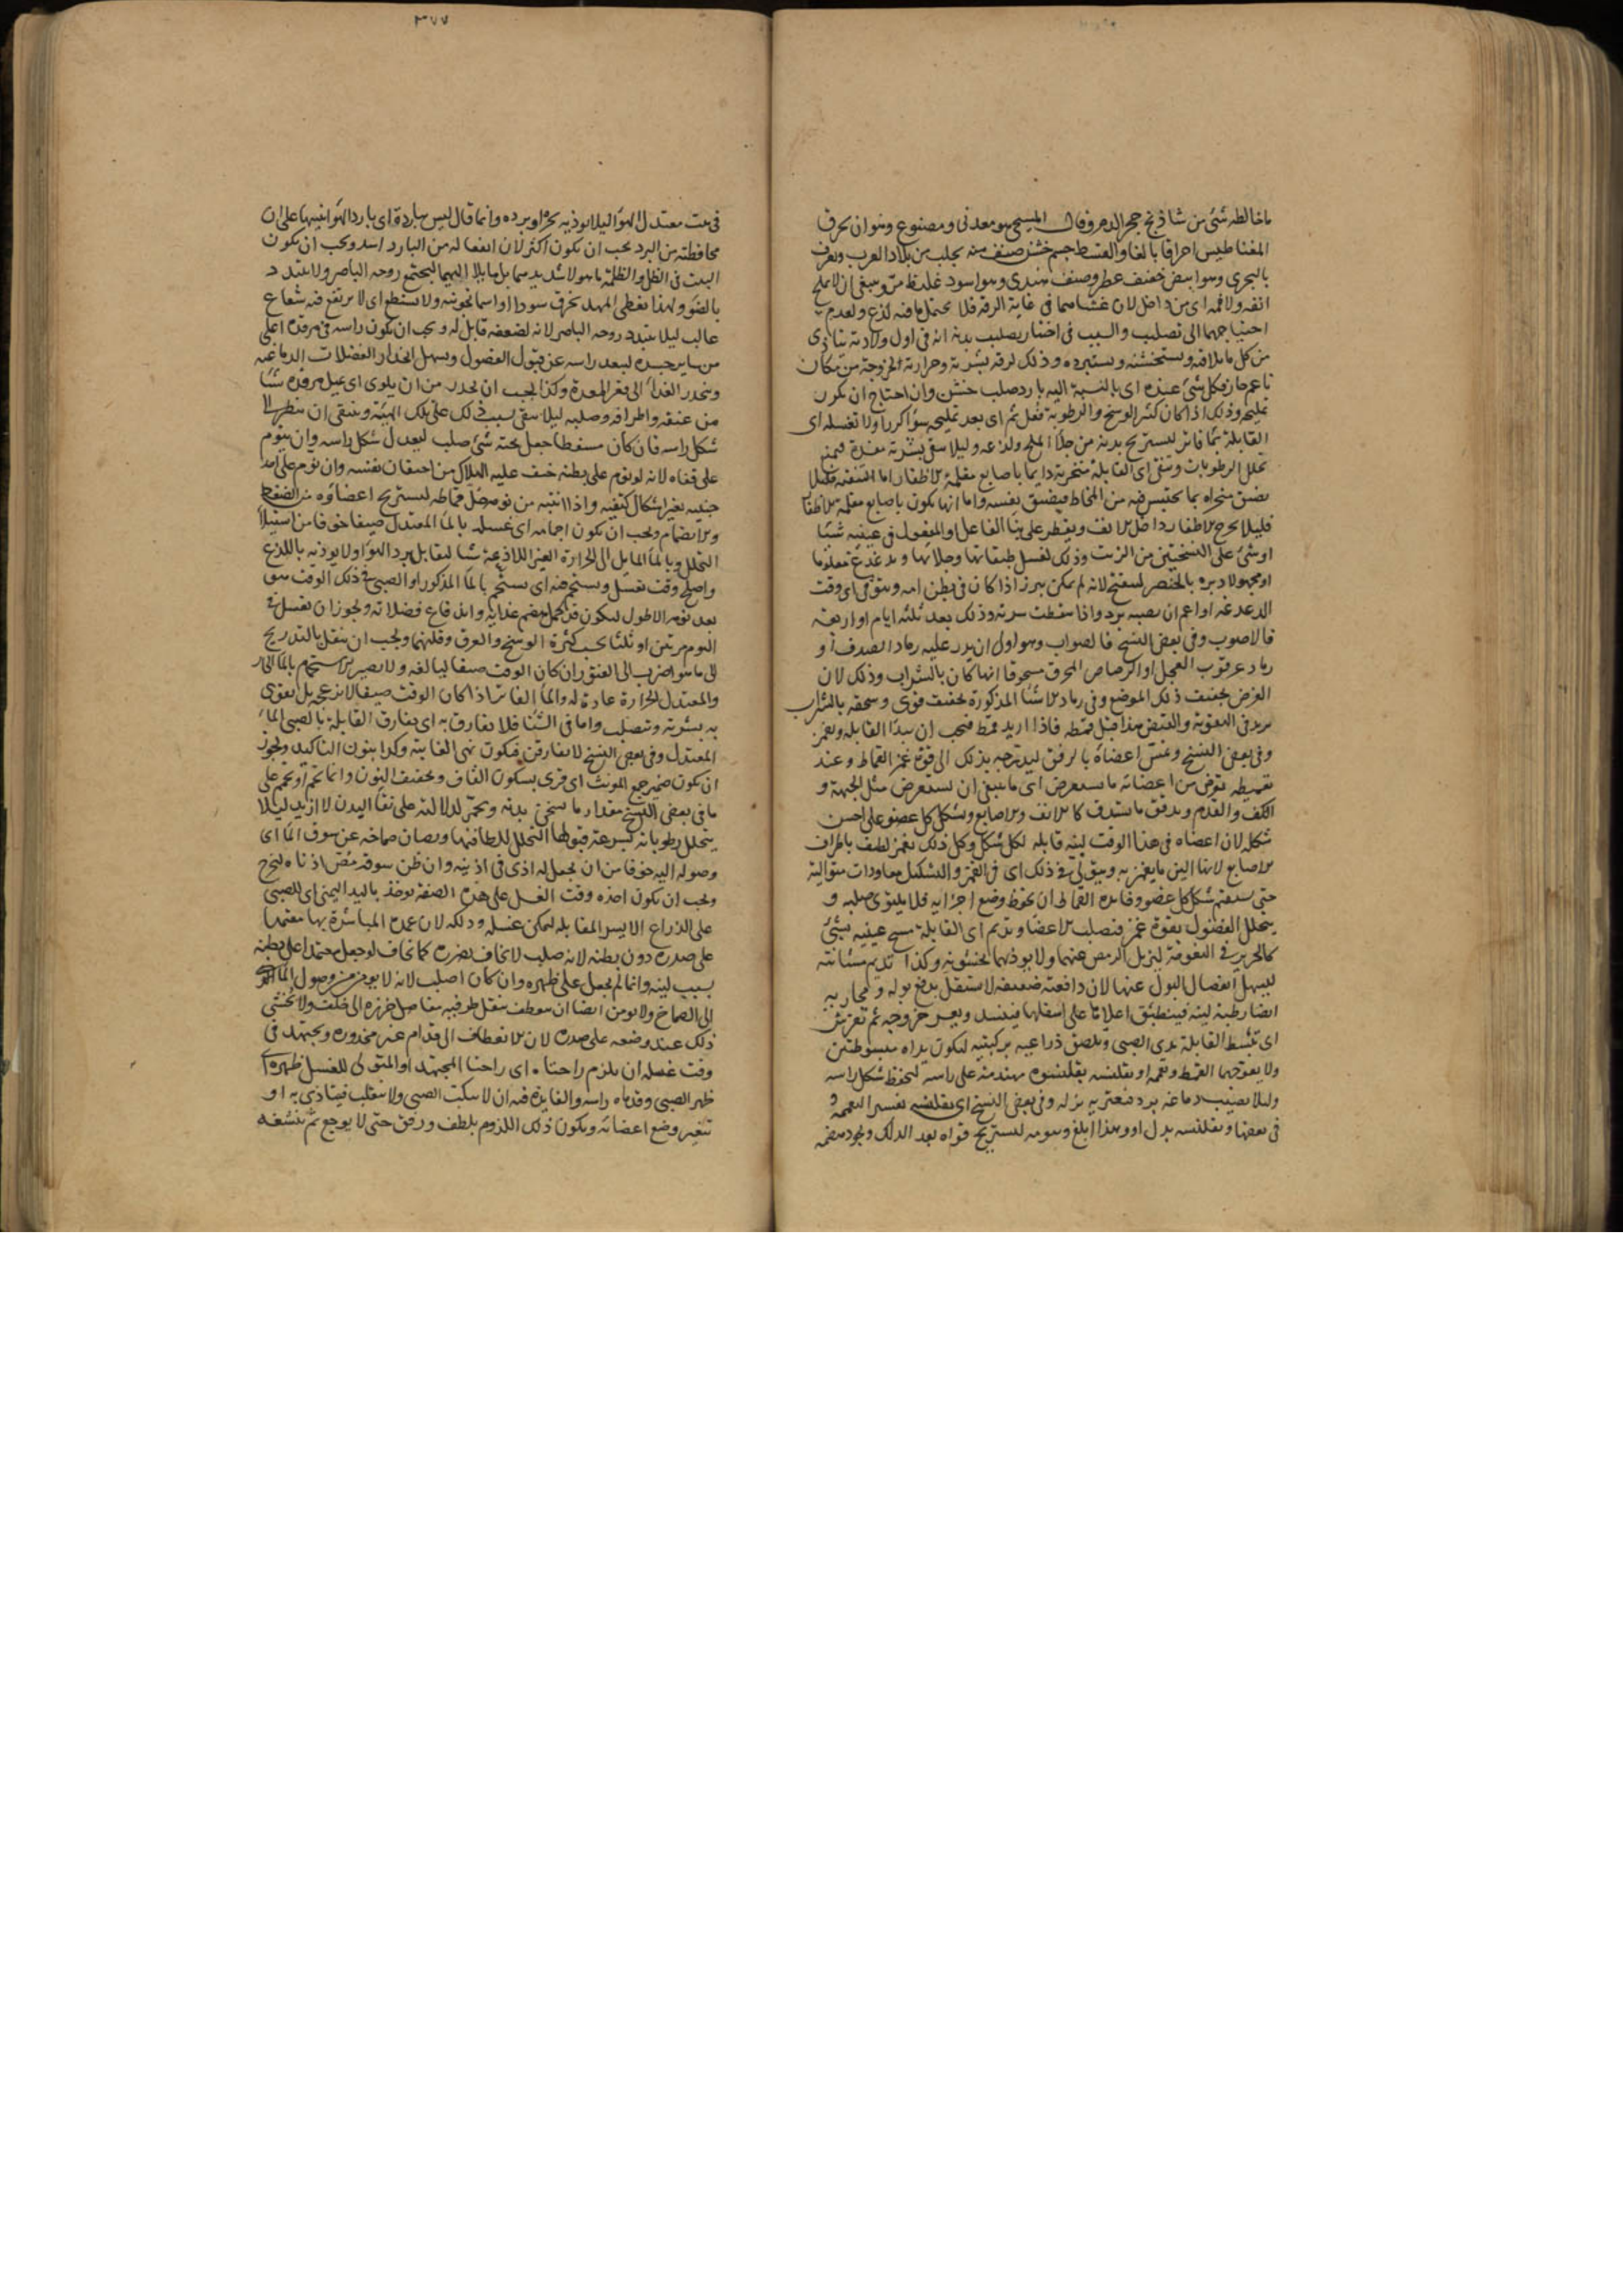 ما خالطه شئ من شاذنج حجر الدم وقال المسيحى هو معدنى ومصنوع وهو ان يحرق
المغناطيس احراقا بالغا والقسط جسم خشن صنف منه يجلب من بلاد العرب ويعرف
بالبحرى وهو ابيض خفيف عطر وصنف هندى وهو اسود غليظ مر وينبغى ان لا يملح
انفه ولا فمه اى من داخل لان غشاءهما فى غاية الرقة فلا يحتمل ما فيه لذع ولعدم
احتياجهما الى تصليب والسبب فى اختيار تصليب بدنه انه فى اول ولادته يتاذى
من كل ما يلاقيه ويستخشنه ويستبرده وذلك لرقة بشرته وحرارته لخروجه من مكان
ناعم حار فكل شئ عنده اى بالنسبة اليه بارد صلب خشن وان احتاج ان يكرر
تمليحه وذلك اذا كان كثير الوسخ والرطوبة فعل ثم اى بعد تمليحه سواء كرر او لا تغسله اى
القابلة بماء فاتر ليستريح بدنه من جلاء الملح ولذعه وليلا يبقى بشرته
تحلل الرطوبات وتنقى اى القابلة منخريه دايما باصابع مقلمة الاظفار اما التنقية فليلا
يضيق منخراه بما يحتبس فيه من المخاط فيضيق نفسه واما انها يكون باصابع مقلمة الاظفار
فليلا يجرح الاظفار داخل الانف ويقطر على بناء الفاعل والمفعول فى عينيه شيئا
او شئ على النسختين من الزيت وذلك لغسل طبقاتها وجلائها ويدغدغ معلوما
او مجهولا دبره بالخنصر لينفتح لانه لم يمكن يبرز اذا كان فى بطن امه ويتوقى اى وقت
الدغدغة او اعم ان يصيبه برد واذا سقطت سرته وذلك بعد ثلثة ايام او اربعة
فالاصوب وفى بعض النسخ فالصواب وهو اولى ان يذر عليه رماد الصدف او
رماد عرقوب العجل او الرصاص المحرق مسحوقا ايها كان بالشراب وذلك لان
الغرض تجفيف ذلك الموضع وفى رماد الاشياء المذكورة تجفيف قوى وسحقه بالشراب
يزيد فى التقوية والقبض هذا قبل قمطه فاذا اريد قمطه فيجب ان يبدأ القابلة وتغمز
وفى بعض النسخ وتمس اعضاءه بالرفق ليتدرج بذلك الى قوة غمز القماط وعند
تقميطه يعرض من اعضائه ما يستعرض اى ما ينبغى ان يستعرض مثل الجبهة و
الكف والقدم ويدقق ما يستدق كالانف والاصابع ويشكل كل عضو على احسن
شكله لان اعضاه فى هذا الوقت لينة قابلة لكل شكل وكل ذلك بغمز لطيف باطراف
الاصابع لانها الين ما يغمز به ويتوالى فى ذلك اى فى الغمز والتشكيل معاودات متوالية
حتى يستقيم شكل كل عضو وفايدة القماط ان يحفظ وضع اجزايه فلا يلتوى صلبه و
يتحلل الفضول بقوة غمزه فتصلب الاعضا ويديم اى القابلة مسح عينيه بشئ
كالحرير فى النعومة ليزيل الرمص عنهما ولا يوذيهما بخشونته وكذا تديم مثانته
ليسهل انفصال البول عنها لان دافعته ضعيفة لا تستقل بدفع بوله ومجاريه
ايضا رطبة لينة فينطبق اعلاها على اسفلها فينسد ويعسر خروجه ثم تفرش
اى تبسط القابلة يدى الصبى وتلصق ذراعيه بركبتيه ليكون يداه مبسوطتين
ولا يعوجهما القمط وتعممه او تقلنسه بقلنسوة مهندمة على راسه لتحفظ شكل راسه
وليلا يصيب دماغه برد فتعتريه نزلة وفى بعض النسخ اى تقلنسه تفسير التعميم و
فى بعضها وتقلنسه بدل او وهذا ابلغ وينومه ليستريح قواه بعد الدلك ويجود هضمه
٣٧٧
فى بيت معتدل الهواء ليلا يوذيه بحره او برده وانما قال ليس ببارد اى بارد الهواء تنبيها على ان
محافظته من البرد يجب ان يكون اكثر لان انفعاله من البارد اشد ويجب ان يكون
البيت فى الظل والظلمة ما هو لا شديد بل مايلا اليهما ليجتمع روحه الباصر ولا يتبدد
بالضوء ولهذا يغطى المهد بخرق سود او اسمانجونية ولا يسطع اى لا يرتفع فيه شعاع
غالب ليلا يتبدد روحه الباصر لانه لضعفه قابل له ويجب ان يكون راسه فى مرقده اعلى
من ساير جسده ليبعد راسه عن قبول الفضول ويسهل انحدار الفضلات الدماغية
وينحدر الغذاء الى قعر المعدة وكذا يجب ان يحذر من ان يلوى اى يميل مرقده شيئا
من عنقه واطرافه وصلبه ليلا يبقى بسبب ذلك على تلك الهيئة وينبغى ان ينظر الى
شكل راسه فان كان مسفطا جعل تحته شئ صلب ليعدل شكل راسه وان ينوم
على قفاه لانه لو نوم على بطنه خيف عليه الهلاك من احتقان نفسه وان نوم على احد
جنبيه تغير اشكال كتفيه واذا انتبه من نومه حل قماطه ليستريح اعضاؤه من الضغط
والانضمام ويجب ان يكون احمامه اى غسله بالماء المعتدل صيفا خوفا من استيلاء
التحلل وبالماء المايل الى الحرارة الغير اللاذعة شتاء ليقابل برد الهواء ولا يوذيه باللذع
واصلح وقت يغسل ويستحم فيه اى يستحم بالماء المذكور او الصبى فى ذلك الوقت هو
بعد نومه الاطول ليكون قد كمل هضم غذايه واندفاع فضلاته ويجوز ان يغسل فى
اليوم مرتين او ثلثا بحسب كثرة الوسخ والعرق وقلتهما ويجب ان ينقل بالتدريج
الى ما هو اضرب الى الفتور ان كان الوقت صيفا ليالفه ولا يصير الاستحمام بالماء الحار
والمعتدل الحرارة عادة له والماء الفاتر اذا كان الوقت صيفا لا يزعجه بل يقوى
به بشرته وتصلب واما فى الشتاء فلا يفارق به اى يفارق القابلة بالصبى الماء
المعتدل وفى بعض النسخ لا يفارقن فيكون نهى الغايبة وكدا بنون التاكيد ويجوز
ان يكون ضمير جمع المونث اى قرى بسكون القاف وتخفيف النون وانما يحمر او يحمم على
ما فى بعض النسخ مقدار ما يسخن بدنه ويحمر لدلالته على نقاء البدن لا ازيد ليلا
يتحلل رطوباته بسرعة قبولها التحلل للطافتها ويصان صماخه عن سبوق الماء اى
وصوله اليه خوفا من ان يحصل له اذى فى اذنيه وان ظن سبوقه مص اذناه ليخرج
ويجب ان يكون اخذه وقت الغسل على هذه الصفة يوخذ باليد اليمنى اى للصبى
على الذراع الايسر المقابلة ليمكن غسله ودلكه لان عمدة المباشرة بها معتمدا
على صدره دون بطنه لانه صلب لا يخاف تضرره كما يخاف لو جعل معتمدا على بطنه
بسبب لينه وانما لم يجعل على ظهره وان كان اصلب لانه لا يومن من وصول الماء
الى الصماخ ولا يومن ايضا ان ينعطف بثقل طرفيه مفاصل خرزه الى خلف ولا يخشى
ذلك عند وضعه على صدره لان الانعطاف الى قدام غير محذور ويجتهد فى
وقت غسله ان يلزم راحتاه اى راحتا المجتهد او المتولى للغسل ظهره اى
ظهر الصبى وقدماه راسه والفايدة فيه ان لا ينكب الصبى ولا ينقلب فيتاذى به او
تتغير وضع اعضائه ويكون ذلك اللزوم بلطف ورفق حتى لا يوجع ثم ينشفه